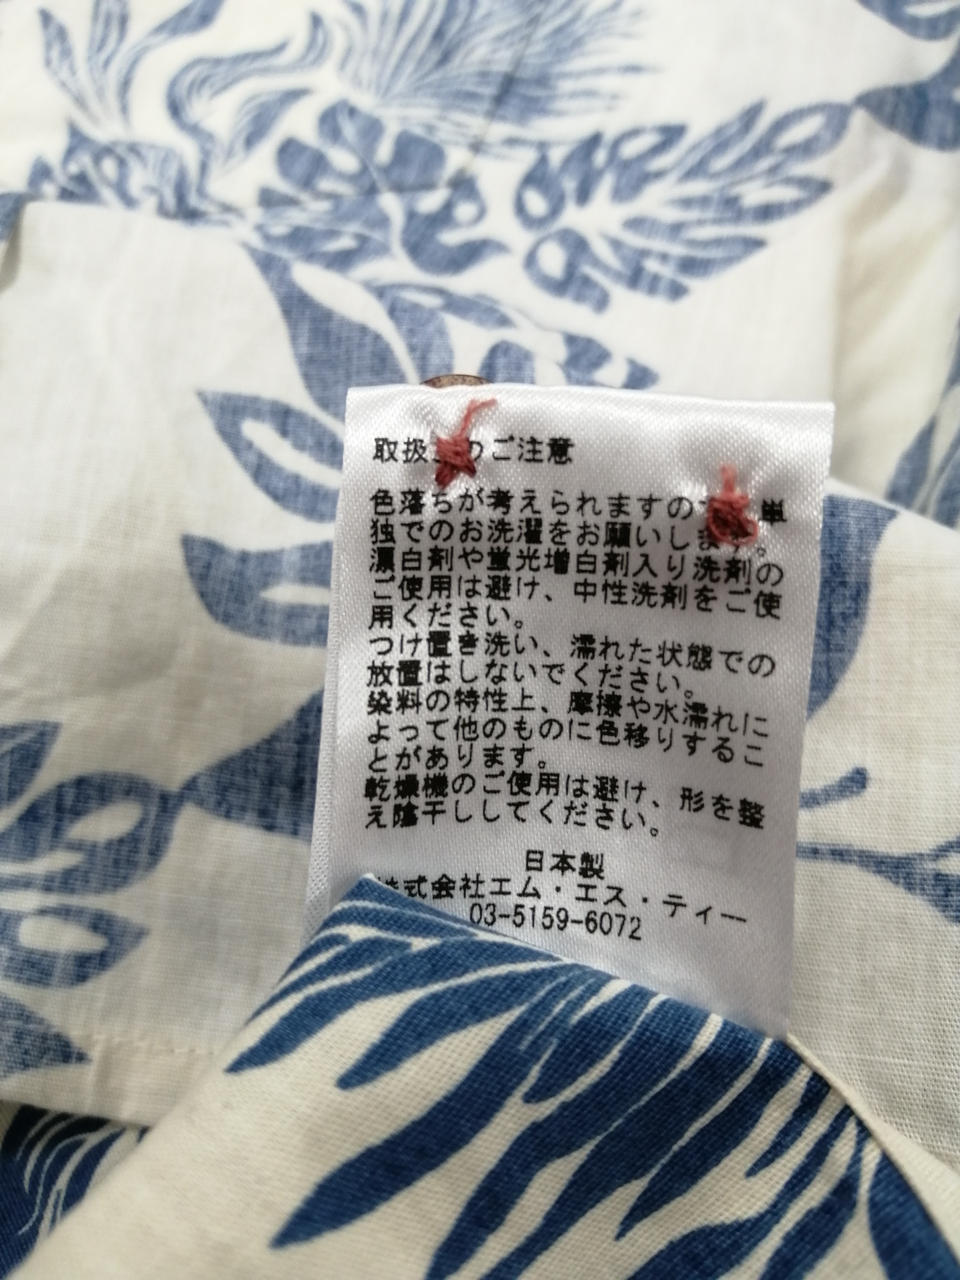 取扱のご注意
色落ちが考えられますの 単
独でのお洗濯をお願いします。
漂白剤や蛍光増白剤入り洗剤の
ご使用は避け、中性洗剤をご使
用ください。
つけ置き洗い、濡れた状態での
放置はしないでください。
染料の特性上、摩擦や水濡れに
よって他のものに色移りするこ
とがあります。
乾燥機のご使用は避け、形を整
え陰干ししてください。
日本製
株式会社エム・エス・ティー
03-5159-6072